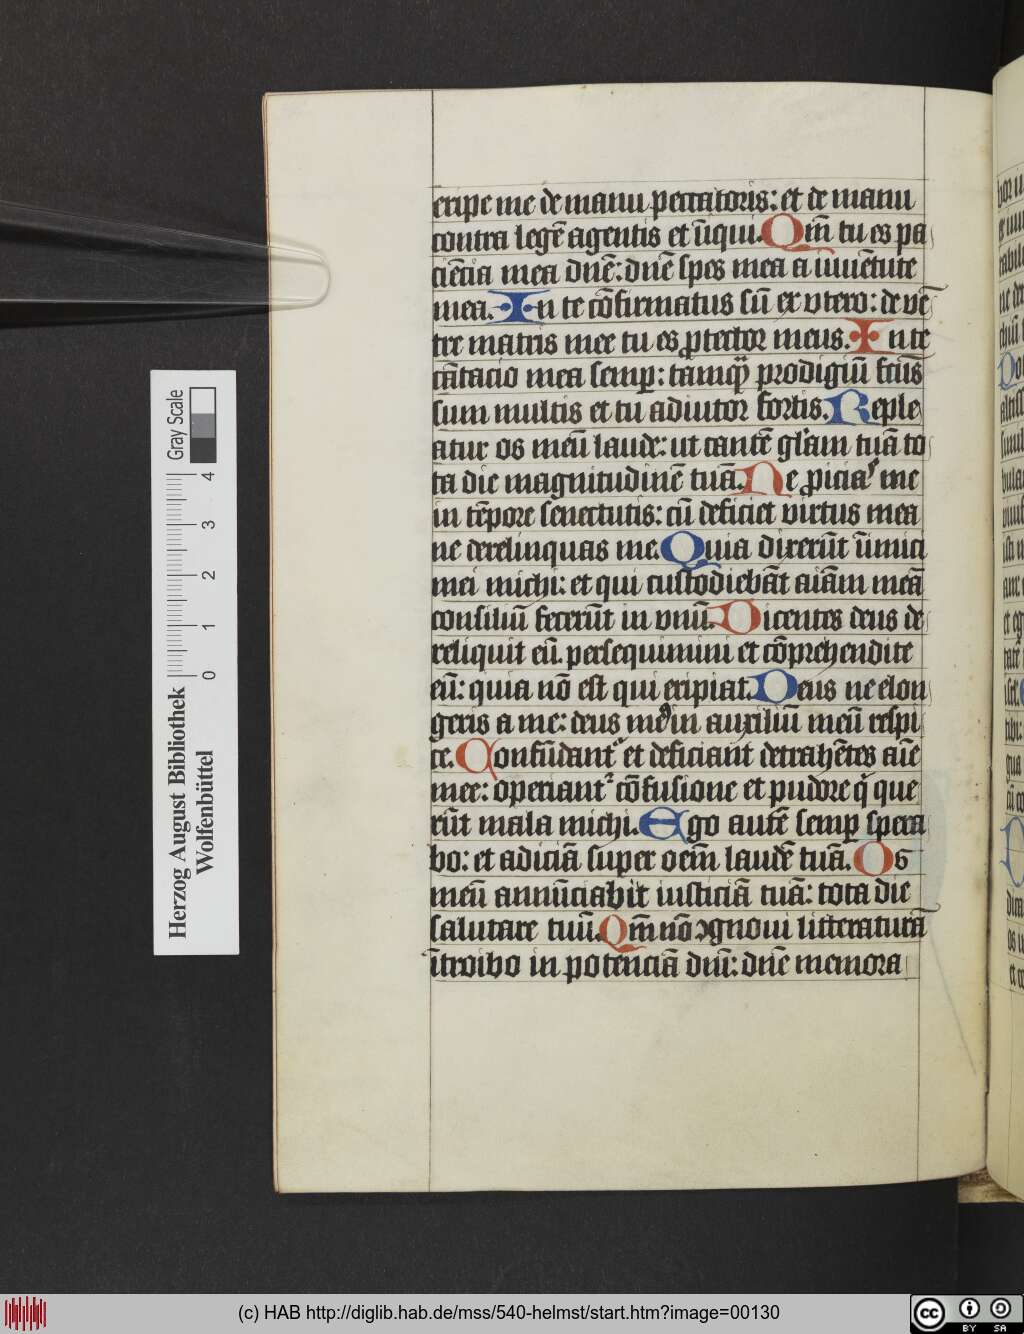 eripe me de manu peccatoris: et de manu
contra legē agentis et īiqui. Qm̄ tu es pa
ciēcia mea dnē: dnē spes mea a iuuētute
mea. In te cōfirmatus sū ex vtero: de vē
tre matris mee tu es ꝓtector meus. In te
cātacio mea semꝑ: tamqꝫ prodigiū fcūs
sum multis et tu adiutor fortis. Reple
atur os meū laude: ut cantē gl'am tuā to
ta die magnitudinē tuā. Ne ꝓiciaˢ me
in tēpore senectutis: cū deficiet virtus mea
ne derelinquas me. Quia dixerūt īimici
mei michi: et qui custodiebāt aīam meā
consiliū fecerūt in vnū. Dicentes deus de
reliquit eū. persequimini et cōprehendite
eū: quia nō est qui eripiat. Deus ne elon
geris a me: deus meꝰ in auxiliū meū respi
ce. Confūdantᷣ et deficiant detrahētes aīe
mee: operiantᷣ cōfusione et pudore q̇ que
rūt mala michi. Ego autē semꝑ spera
bo: et adiciā super oem̄ laudē tuā. Os
meū annūciabit iusticiā tuā: tota die
salutare tuū. Qm̄ nō ꝯgnoui litteraturā
ītroibo in potenciā dnī: dnē memora
Gray Scale
0 1 2 3 4
Herzog August Bibliothek
Wolfenbüttel
(c) HAB http://diglib.hab.de/mss/540-helmst/start.htm?image=00130
cc BY SA